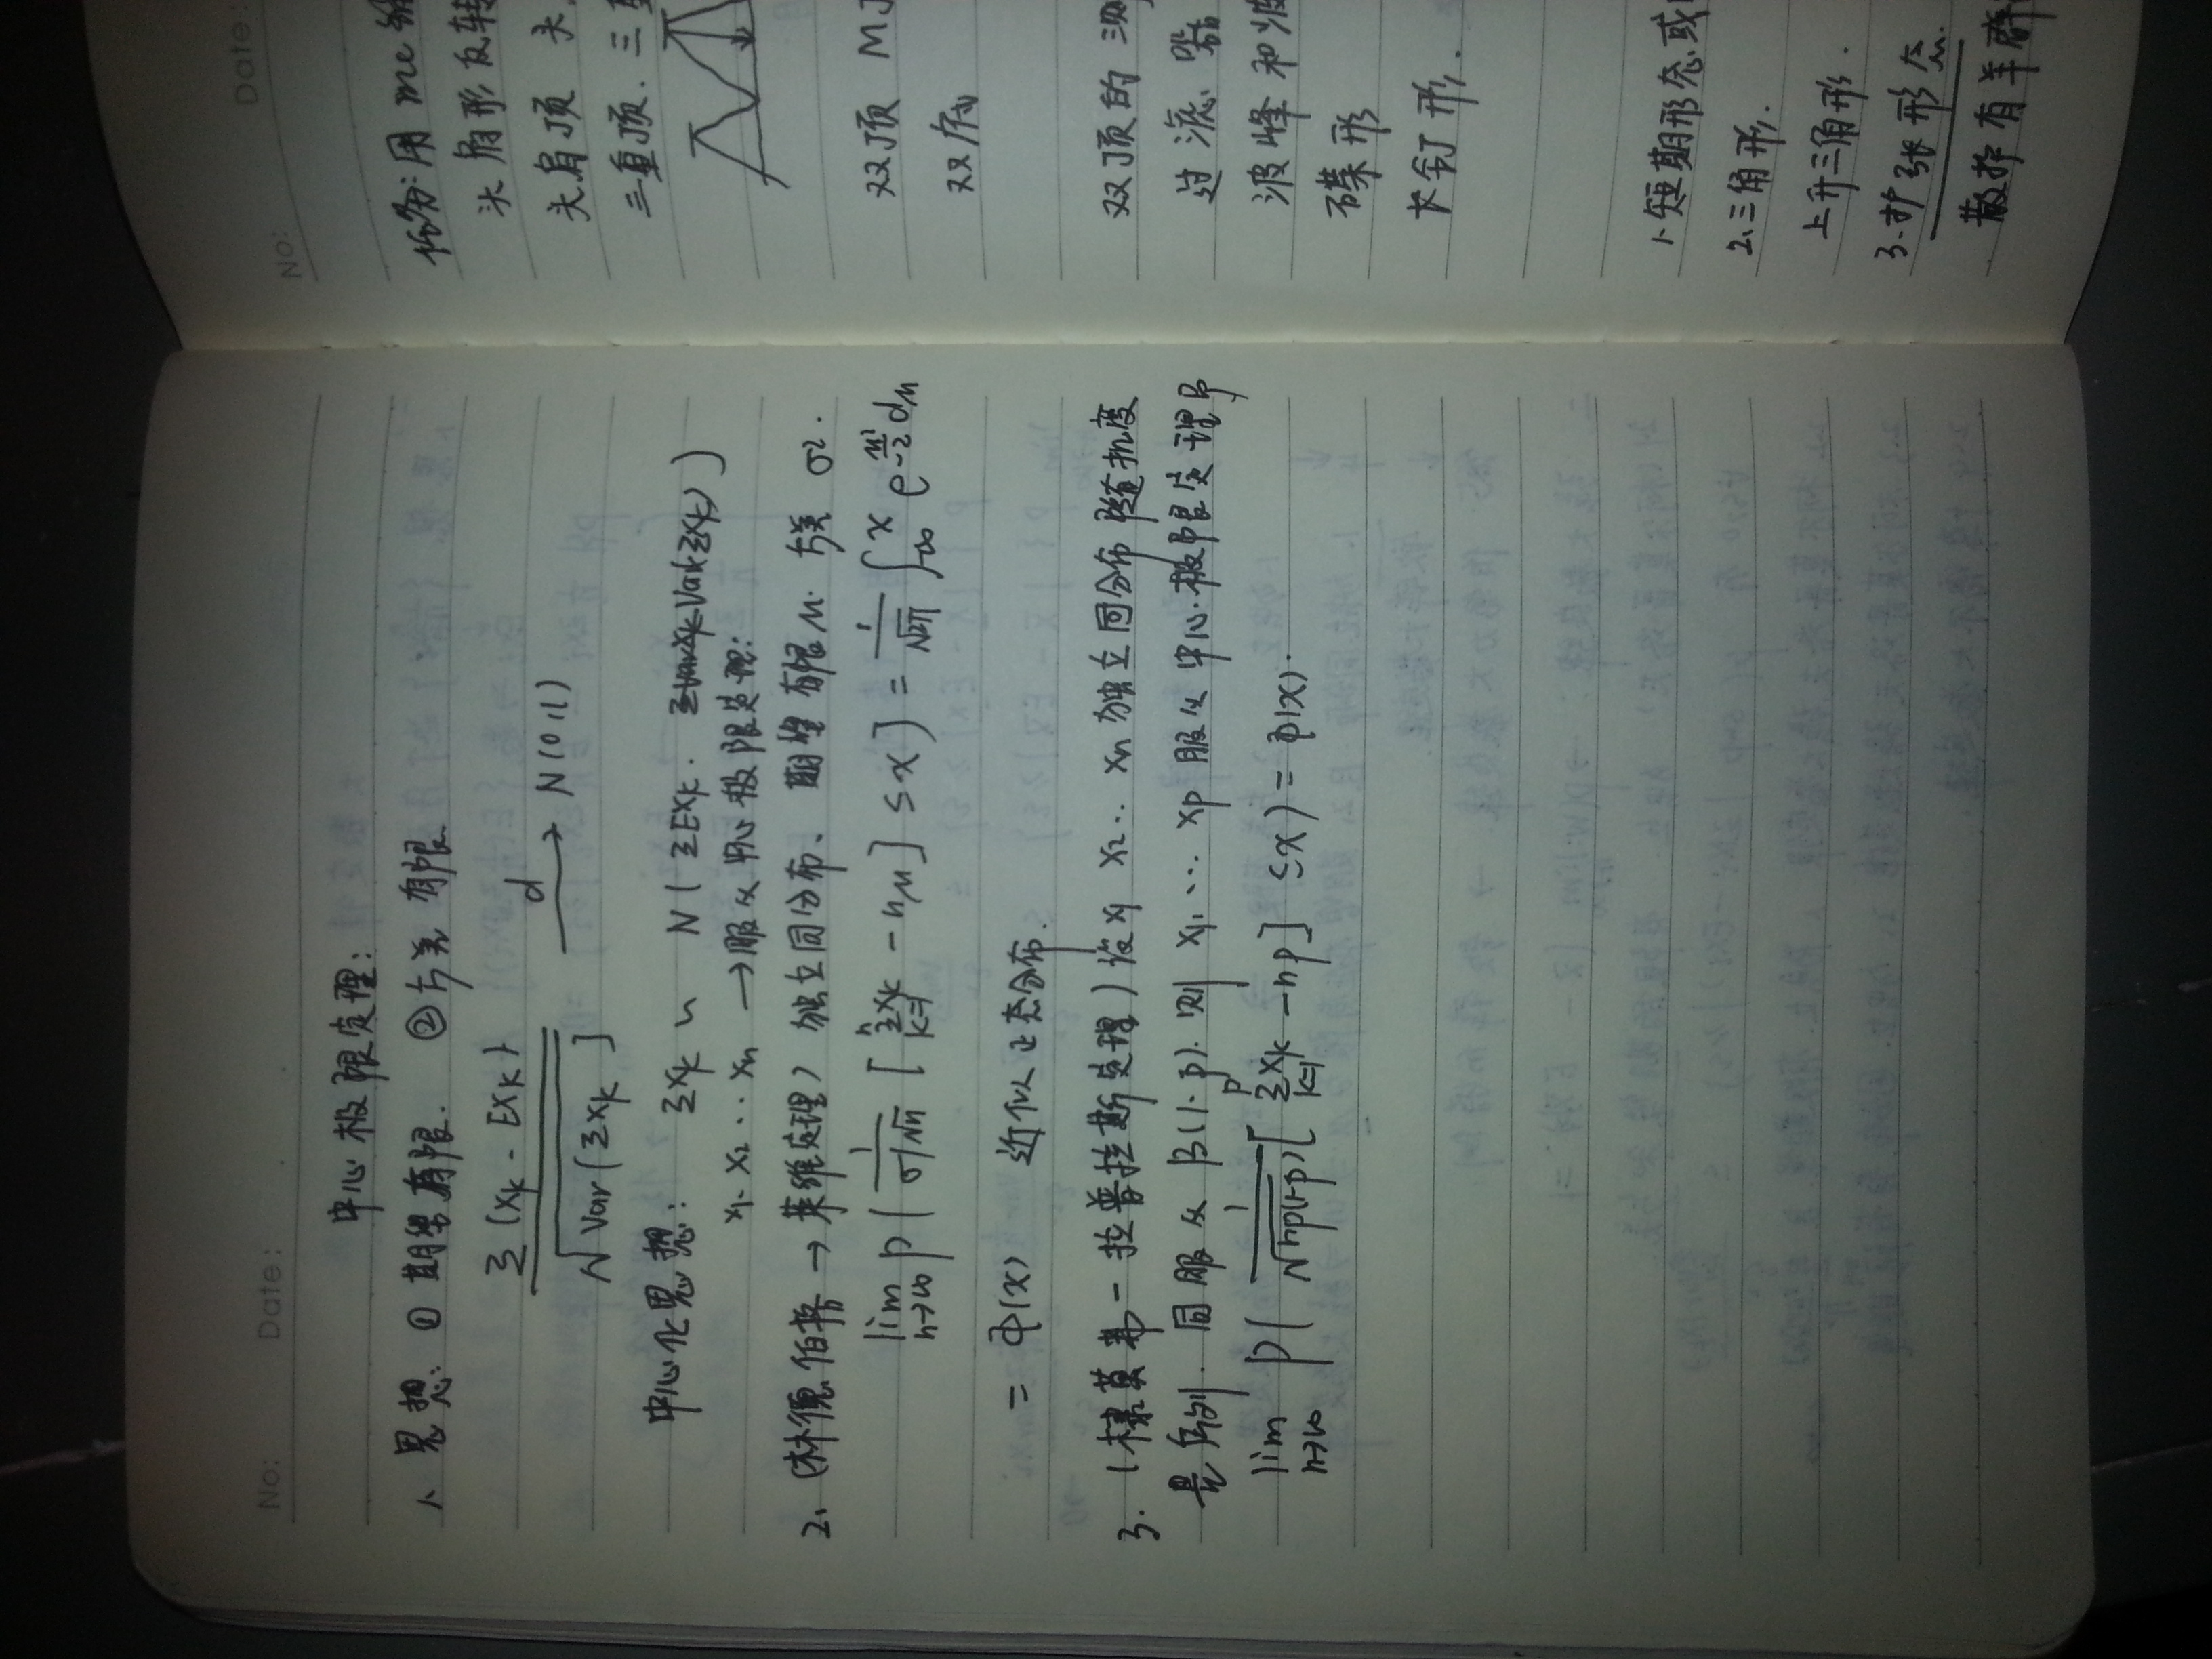 No: Date:
中心极限定理:
1、思想: ① 期望有限. ② 方差有限
Σ(Xk - EXk)
d → N(0,1)
√Var(ΣXk)
中心化思想: ΣXk ~ N(ΣEXk. Var(ΣXk))
X1. X2 ... Xn → 服从中心极限定理:
2、(林德伯格 → 莱维定理) 独立同分布、期望有限μ. 方差 σ².
lim n→∞ P( 1/σ√n [ Σ k=1 n Xk - nμ ] ≤ x ) = 1/√2π ∫-∞ x e^-u²/2 du
= Φ(x) 近似正态分布.
3. (棣莫弗-拉普拉斯定理) 设 X1 X2.. Xn 独立同分布随机度
是序列. 同服从 B(1.p). 则 X1, ... Xp 服从中心极限定理即
lim n→∞ P( 1/√np(1-p) [ Σ k=1 p Xk - np ] ≤ x ) = Φ(x).
No: Date:
任务: 用 mc
头肩形反转
头肩顶 头
三重顶. 三
双顶 M
双底
双顶的
过滤器
波峰和波
碟形
长钉形.
1.短期形态.或
2.三角形.
上升三角形.
3.扩张形态.
散户有羊群